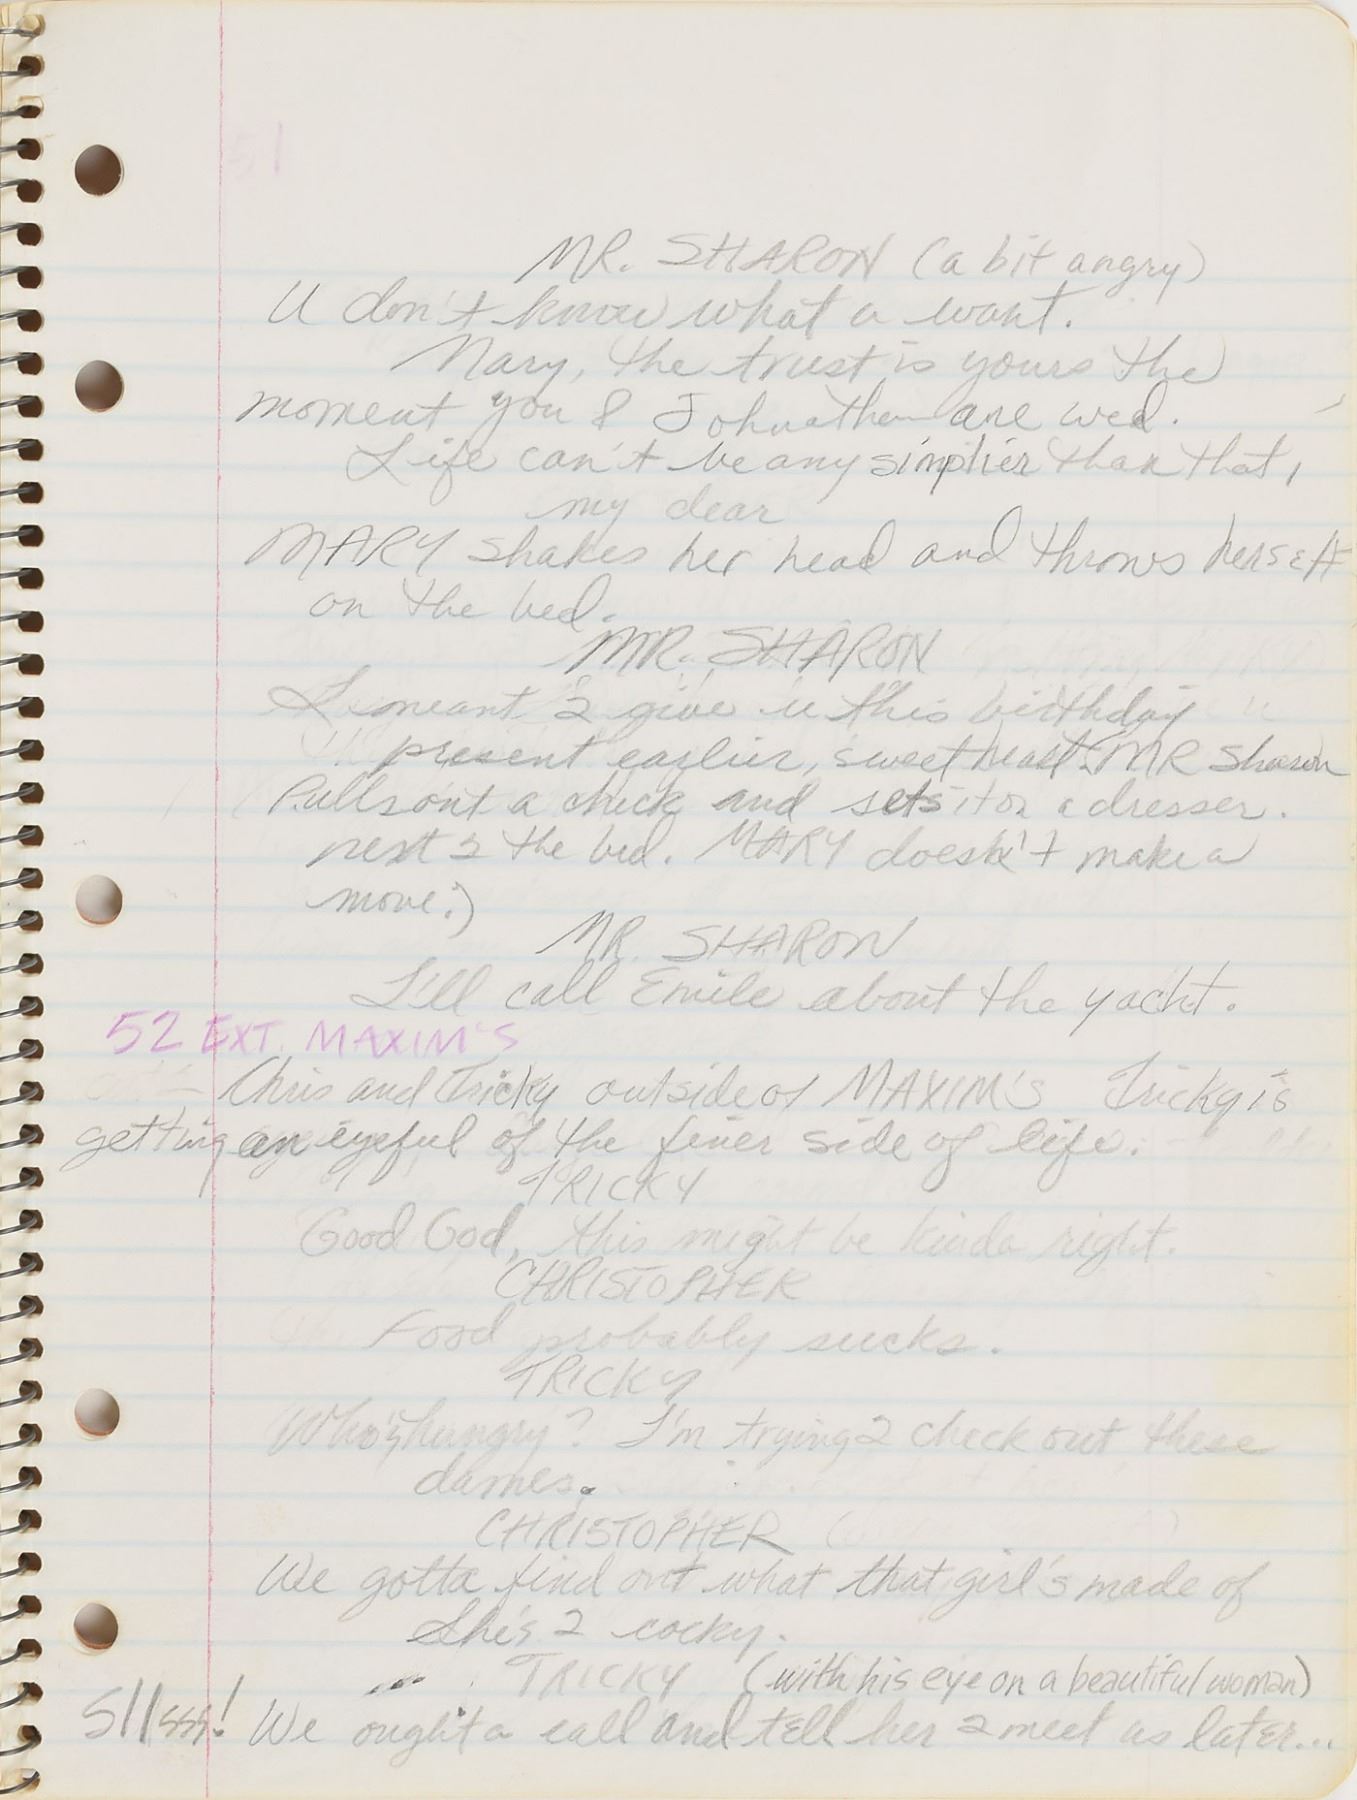 51
MR. SHARON (a bit angry)
U don't know what u want.
Mary, the trust is yours the
moment you & Johnathan are wed.
Life can't be any simplier than that,
my dear
MARY shakes her head and throws herself
on the bed.
MR. SHARON
I meant 2 give u this birthday
present earlier, sweetheart. MR Sharon
Pulls out a check and sets it on a dresser.
next 2 the bed. MARY doesn't make a
move.)
MR. SHARON
I'll call Emile about the yacht.
52 EXT. MAXIM'S
Chris and Tricky outside of MAXIM'S Tricky is
getting an eyeful of the finer side of life.
TRICKY
Good God, this might be kinda right.
CHRISTOPHER
Food probably sucks.
TRICKY
Who's hungry? I'm trying 2 check out these
dames.
CHRISTOPHER
We gotta find out what that girl's made of
She's 2 cocky.
TRICKY (with his eye on a beautiful woman)
S'll sss! We oughta call and tell her 2 meet us later...